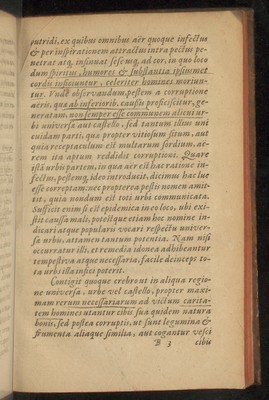 putridi, ex quibus omnibus aër quoque infectus
& per inspirationem attractus intra pectus pe-
netrat atq, insinuat sese mq, ad cor, in quo loco
dum spiritus, humores & substantia ipsiusmet
cordis inficiuntur, celeriter homines moriun-
tur. Vnde observandum, pestem a corruptione
aëris, quæ ab inferiorib. causis proficiscitur, ge-
neratam, non semper esse communem alicui ur-
bi universæ aut castello, sed tantum illius uni
cuidam parti, quæ propter vitiosum situm, aut
quia receptaculum est multarum sordium, aë-
rem ita aptum reddidit corruptioni. Quare
istâ urbis partem, in qua aër est hac ratione in-
fectus, pestemq, ideo introducit, dicimus hac lue
esse correptam: nec propterea pestis nomen amit-
tit, quia nondum est toti urbi communicata.
Sufficit enim si est epidemica in eo loco, ubi exi-
stit caussa mali, potestque etiam hoc nomine in-
dicari atque popularis vocari respectu univer-
sæ urbis, attamen tantum potentia. Nam nisi
occurratur illi, et remedia idonea adhibeantur
tempestiva atque necessaria, facile deinceps to-
ta urbs illa infici poterit.
Contigit quoque crebro ut in aliqua regio-
ne universa, urbe vel castello, propter maxi-
mam rerum necessariarum ad victum carita-
tem homines utantur cibis sua quidem natura
bonis, sed postea corruptis, ut sunt legumina &
frumenta aliaque similia, aut cogantur vesci
B 3 cibis